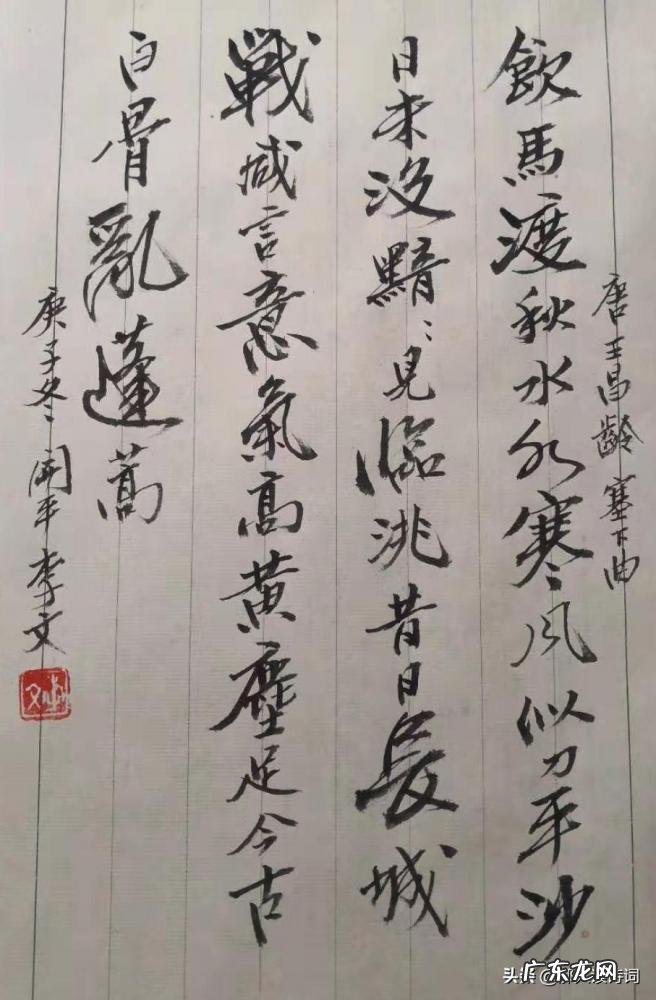 唐王昌齡塞下曲
飲馬渡秋水水寒風似刀平沙
日未沒黯〻見臨洮昔日長城
戰咸言意氣高黃塵足今古
白骨亂蓬蒿
庚子冬 開平李文
头条
诗词
广东龙网